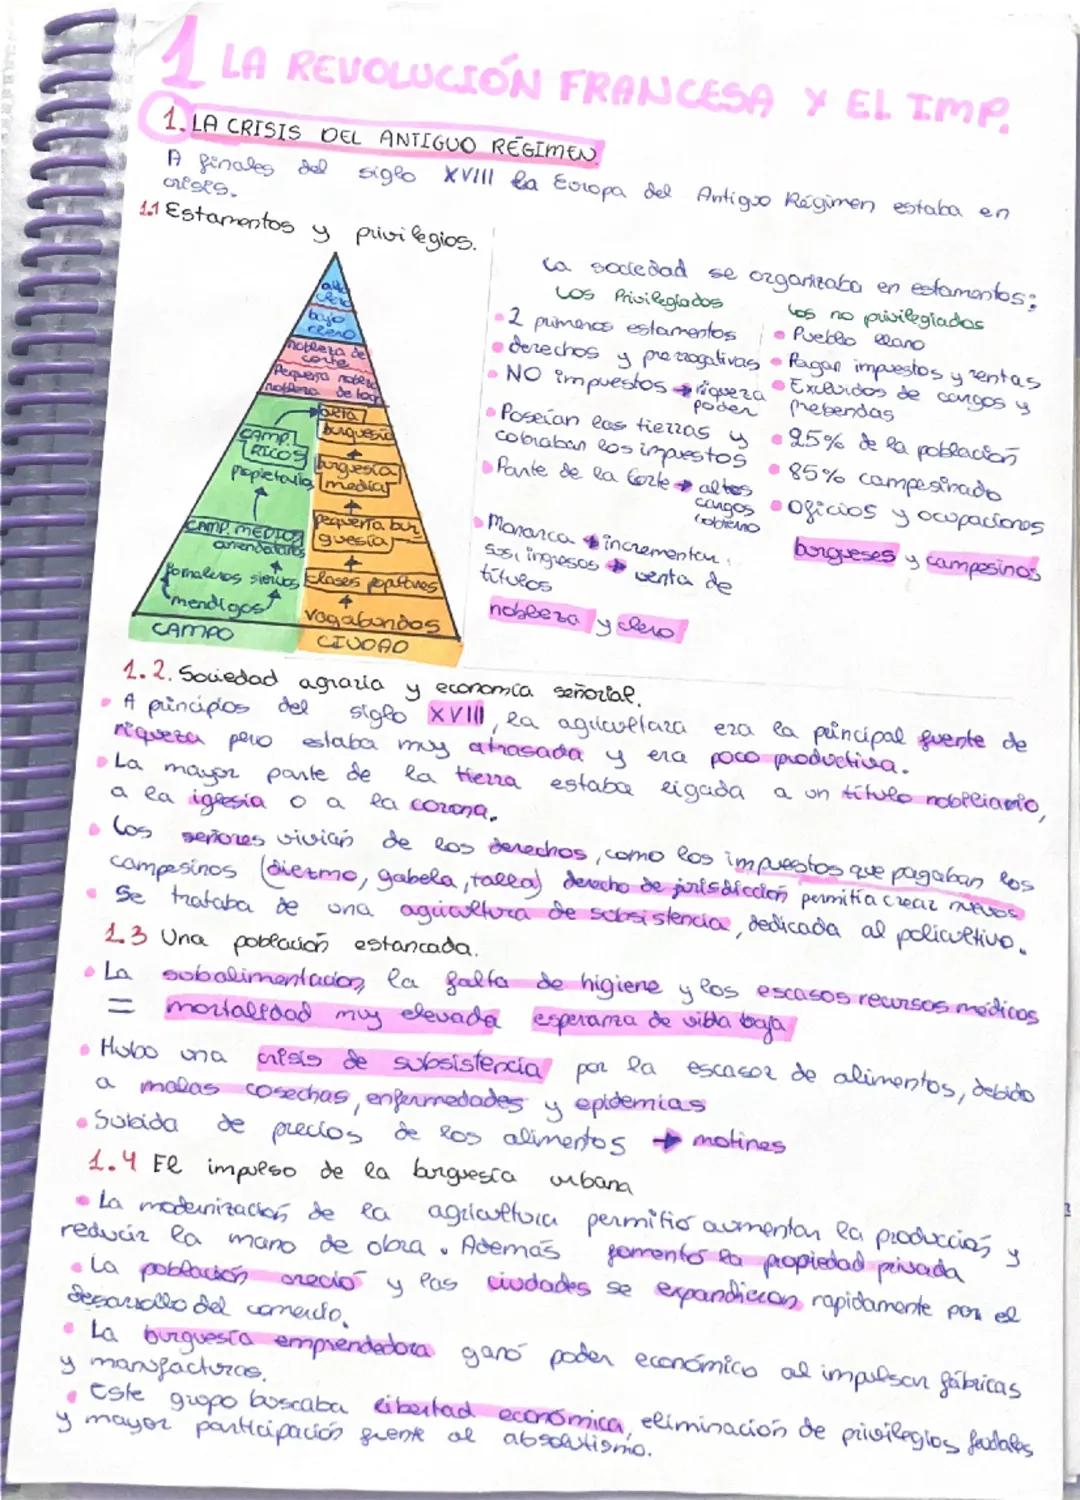 1 LA REVOLUCIÓN FRANCESA Y EL IMP.
1. LA CRISIS DEL ANTIGUO RÉGIMEN.
A finales del siglo XVIII la Europa del Antiguo Régimen estaba en
crisis.
1.1 Estamentos y privilegios.
alto
clero
bajo
clero
nobleza de
corte
Pequeña nobleza
nobleza de toga
CAMP.
RICOS
propietarios
CAMP. MEDIOS
arrendatarios
jornaleros siervos
mendigos
CAMPO
alta
burguesía
burguesía
media
pequeña bur
guesía
clases populares
vagabundos
CIUDAD
La sociedad se organizaba en estamentos:
Los Privilegiados
• 2 primeros estamentos
• derechos y prerrogativas
• NO impuestos → riqueza
poder
• Poseían las tierras y
cobraban los impuestos
• Parte de la Corte → altos
cargos
gobierno
• Monarca → incrementar
sus ingresos → venta de
títulos
nobleza y clero
Los no privilegiados
• Pueblo llano
• Pagan impuestos y rentas
• Excluidos de cargos y
prebendas
• 95% de la población
• 85% campesinado
• Oficios y ocupaciones
burgueses y campesinos
1.2. Sociedad agraria y economía señorial.
• A principios del siglo XVIII, la agricultura era la principal fuente de
riqueza pero estaba muy atrasada y era poco productiva.
• La mayor parte de la tierra estaba ligada a un título nobiliario,
a la iglesia o a la corona.
• Los señores vivían de los derechos, como los impuestos que pagaban los
campesinos (diezmo, gabela, talla) derecho de jurisdicción permitía crear nuevos
• Se trataba de una agricultura de subsistencia, dedicada al policultivo.
1.3 Una población estancada.
• La subalimentación, la falta de higiene y los escasos recursos médicos
= mortalidad muy elevada esperanza de vida baja
• Hubo una crisis de subsistencia por la escasez de alimentos, debido
a malas cosechas, enfermedades y epidemias
• Subida de precios de los alimentos → motines
1.4 El impulso de la burguesía urbana
• La modernización de la agricultura permitió aumentar la producción y
reducir la mano de obra. Además fomentó la propiedad privada
• La población creció y las ciudades se expandieron rapidamente por el
desarrollo del comercio.
• La burguesía emprendedora ganó poder económico al impulsar fábricas
y manufacturas.
• Este grupo buscaba libertad económica, eliminación de privilegios feudales
y mayor participación frente al absolutismo.